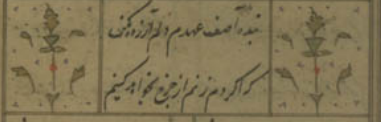 بنده آصف عهدم دلم آزرده مکن
که اگر دم زنم از چرخ بخواهد کینم